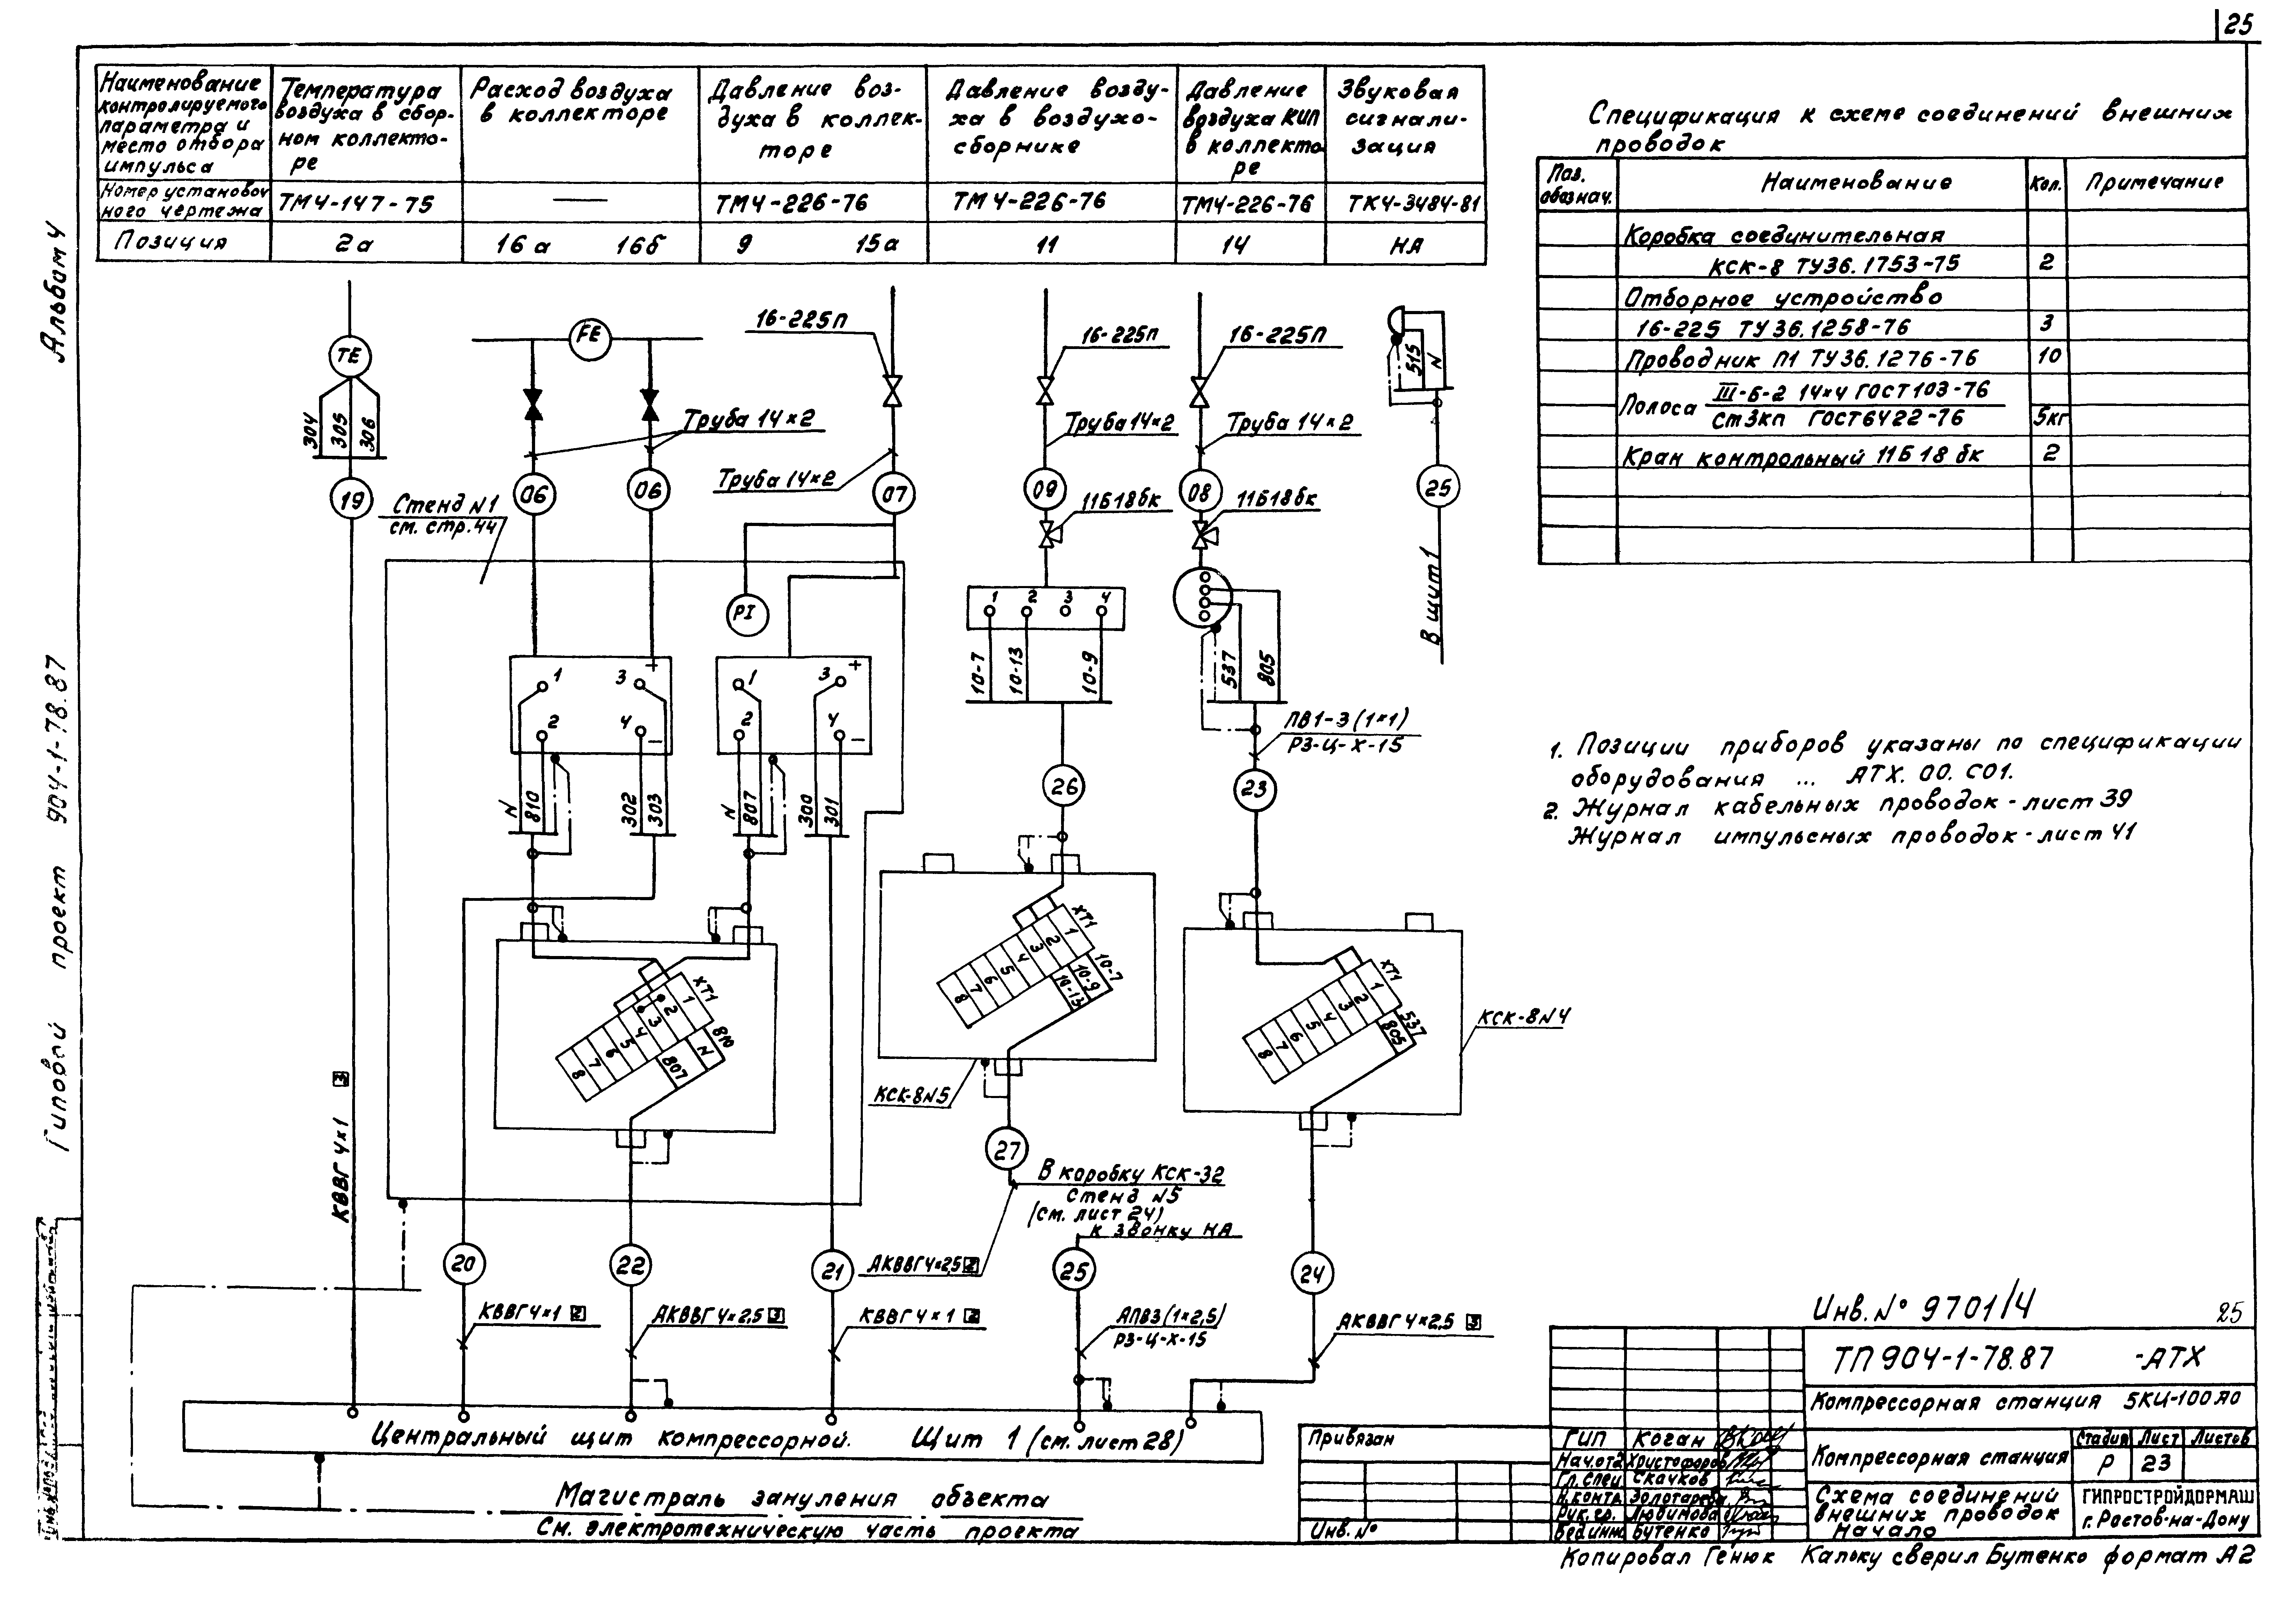 25
Альбом 4
Типовой проект 904-1-78.87
Наименование
контролируемого
параметра и
место отбора
импульса
Температура
воздуха в сбор-
ном коллекто-
ре
Расход воздуха
в коллекторе
Давление воз-
духа в коллек-
торе
Давление возду-
ха в воздухо-
сборнике
Давление
воздуха КИП
в коллекто
ре
Звуковая
сигнали-
зация
Номер установоч
ного чертежа
ТМ4-147-75
—
ТМ4-226-76
ТМ4-226-76
ТМ4-226-76
ТК4-3484-81
Позиция
2а
16а 16б
9 15а
11
14
НА
Спецификация к схеме соединений внешних
проводок
Поз.
обознач.
Наименование
Кол.
Примечание
Коробка соединительная
КСК-8 ТУ36.1753-75 2
Отборное устройство
16-225 ТУ36.1258-76 3
Проводник П1 ТУ36.1276-76 10
Полоса III-Б-2 14×4 ГОСТ103-76
Ст3кп ГОСТ6422-76 5кг
Кран контрольный 11Б18бк 2
1. Позиции приборов указаны по спецификации
оборудования ... АТХ.00.С01.
2. Журнал кабельных проводок - лист 39
Журнал импульсных проводок - лист 41
TE
304
305
306
19
КВВГ 4×1 3
FE
Труба 14×2
06
06
Стенд N1
см. стр.44
16-225п
Труба 14×2
07
PI
1
3 +
2
4 –
1
3 +
2
4 –
N
810
302
303
N
807
300
301
ХТ1
1
2
3
4
5
6
7
8
810
N
807
16-225п
Труба 14×2
09
11Б18бк
1 2 3 4
10-7
10-13
10-9
26
ХТ1
1
2
3
4
5
6
7
8
10-7
10-9
10-13
КСК-8N5
27
В коробку КСК-32
стенд N5
(см. лист 24)
АКВВГ4×2,5 2
16-225п
Труба 14×2
08
11Б18бк
537
805
ПВ1-3(1×1)
РЗ-Ц-Х-15
23
ХТ1
1
2
3
4
5
6
7
8
537
805
КСК-8N4
515
N
25
В щит 1
20
22
21
к звонку НА
25
24
КВВГ4×1 2
АКВВГ4×2.5 3
КВВГ4×1 2
АПВ3(1×2,5)
РЗ-Ц-Х-15
АКВВГ4×2.5 3
Центральный щит компрессорной. Щит 1 (см. лист 28)
Магистраль зануления объекта
См. электротехническую часть проекта
Инв. № 9701/4
25
ТП 904-1-78.87 -АТХ
Компрессорная станция 5КЦ-100А0
Привязан
Инв. №
ГИП Коган
Нач.отд Христофоров
Гл.спец Скачков
Н.контр. Золотарева
Рук.гр. Любимова
Вед.инж Бутенко
Компрессорная станция
Стадия Лист Листов
Р 23
Схема соединений
внешних проводок
Начало
ГИПРОСТРОЙДОРМАШ
г. Ростов-на-Дону
Копировал Генюк Кальку сверил Бутенко формат А2